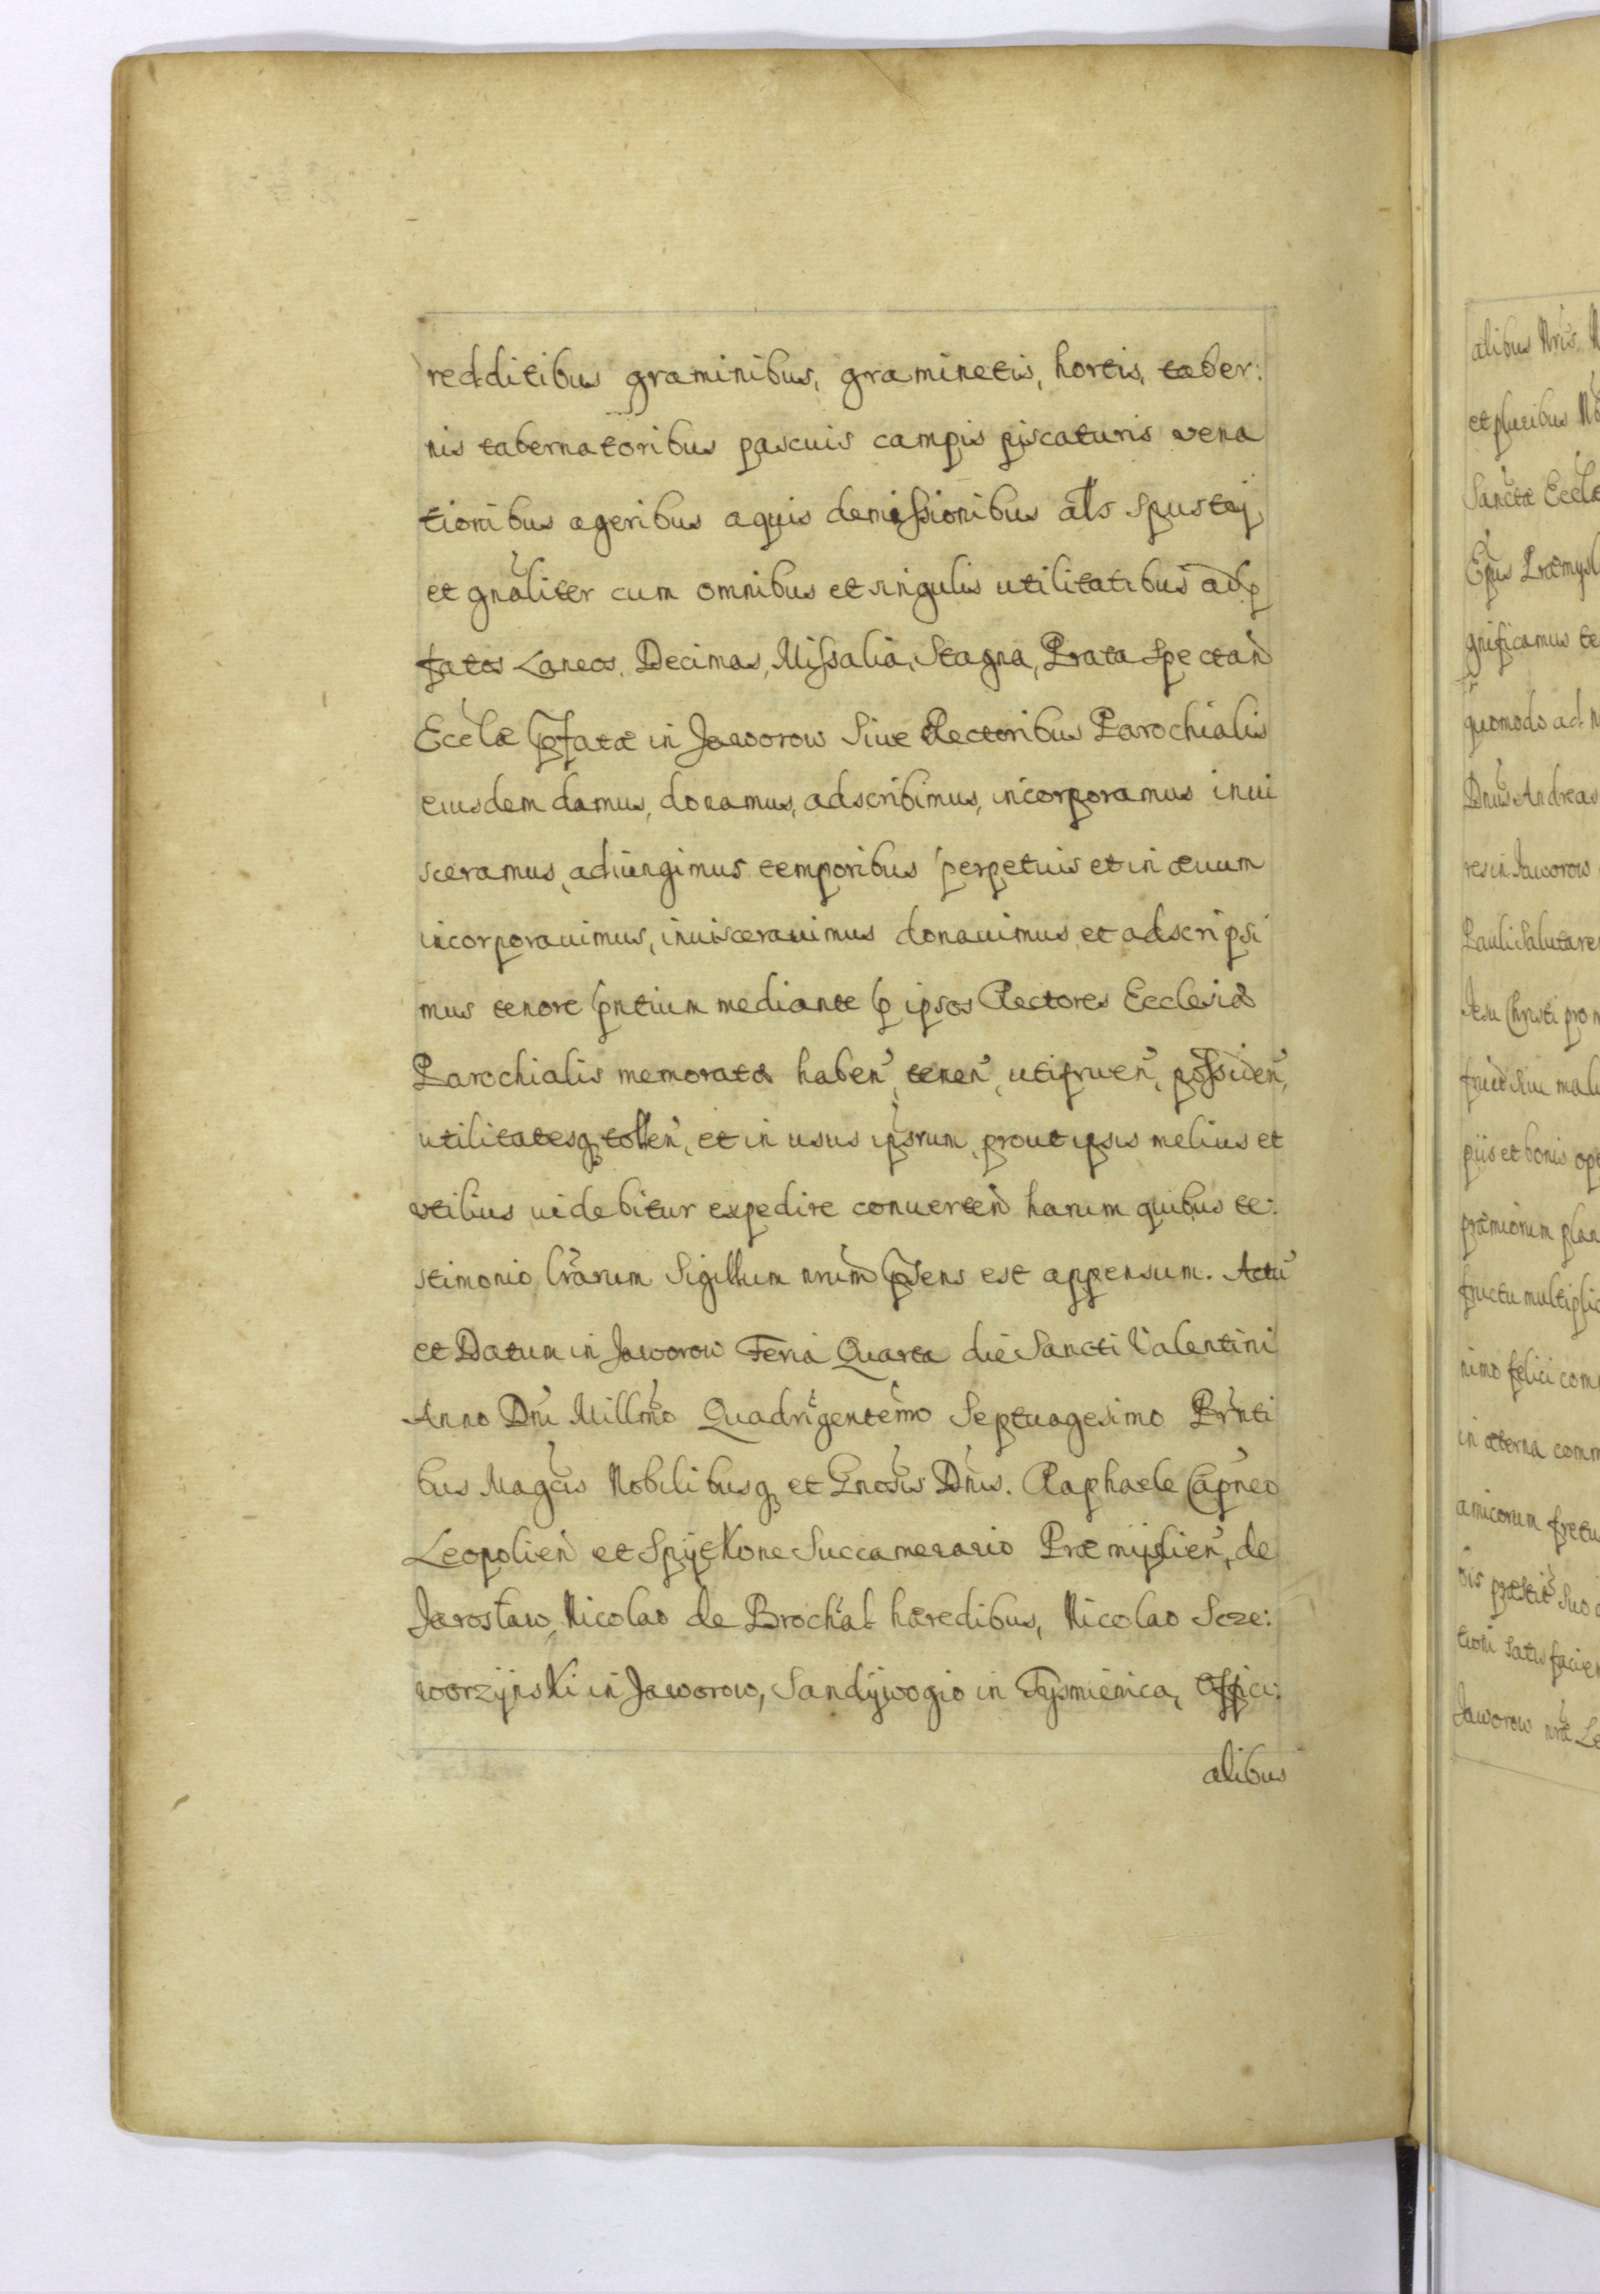 redditibus graminibus, graminetis, hortis, taber:
nis tabernatoribus pascuis campis piscaturis vena
tionibus ageribus aquis demissionibus als spustij,
et gnaliter cum omnibus et singulis utilitatibus ad p
fatos Laneos, Decimas, Missalia, Stagna, Prata spectan
Eccelæ pfatæ in Jaworow Siue Rectoribus Parochialis
eiusdem damus, donamus, adscribimus, incorporamus inui
sceramus, adiungimus temporibus perpetuis et in æuum
incorporauimus, inuiscerauimus donauimus et adscripsi
mus tenore pntium mediante p ipsos Rectores Ecclesiæ
Parochialis memoratæ haben, tenen, utifruen, possiden,
utilitatesq tollen, et in usus ipsrum, prout ipsis melius et
vtilius uidebitur expedire conuerten harum quibus te:
stimonio lrarum Sigillum nrum psens est appensum. Actu
et Datum in Jaworow Feria Quarta die Sancti Valentini
Anno Dni Millmo Quadrigentemo Septuagesimo Prnti
bus Magcis Nobilibusq et Gnosis Dnis. Raphaele Capneo
Leopolien et Spytkone Succamerario Præmyslien, de
Jarosław, Nicolao de Brochal hæredibus, Nicolao Scze:
worzynski in Jaworow, Sandywogio in Tysmienica, Offici:
alibus
alibus Nris
et pluribus
Sanctæ Eccle
Epus Præmysl
gnificamus te
quomodo ad n
Dnus Andreas
res in Jaworow
Pauli Salutare
Jesu Christi pro n
piis et bonis op
præmiorum plan
fructu multiplic
nimo felici com
in æterna comm
amicorum fretu
tioni satisfacien
Jaworow nræ Le